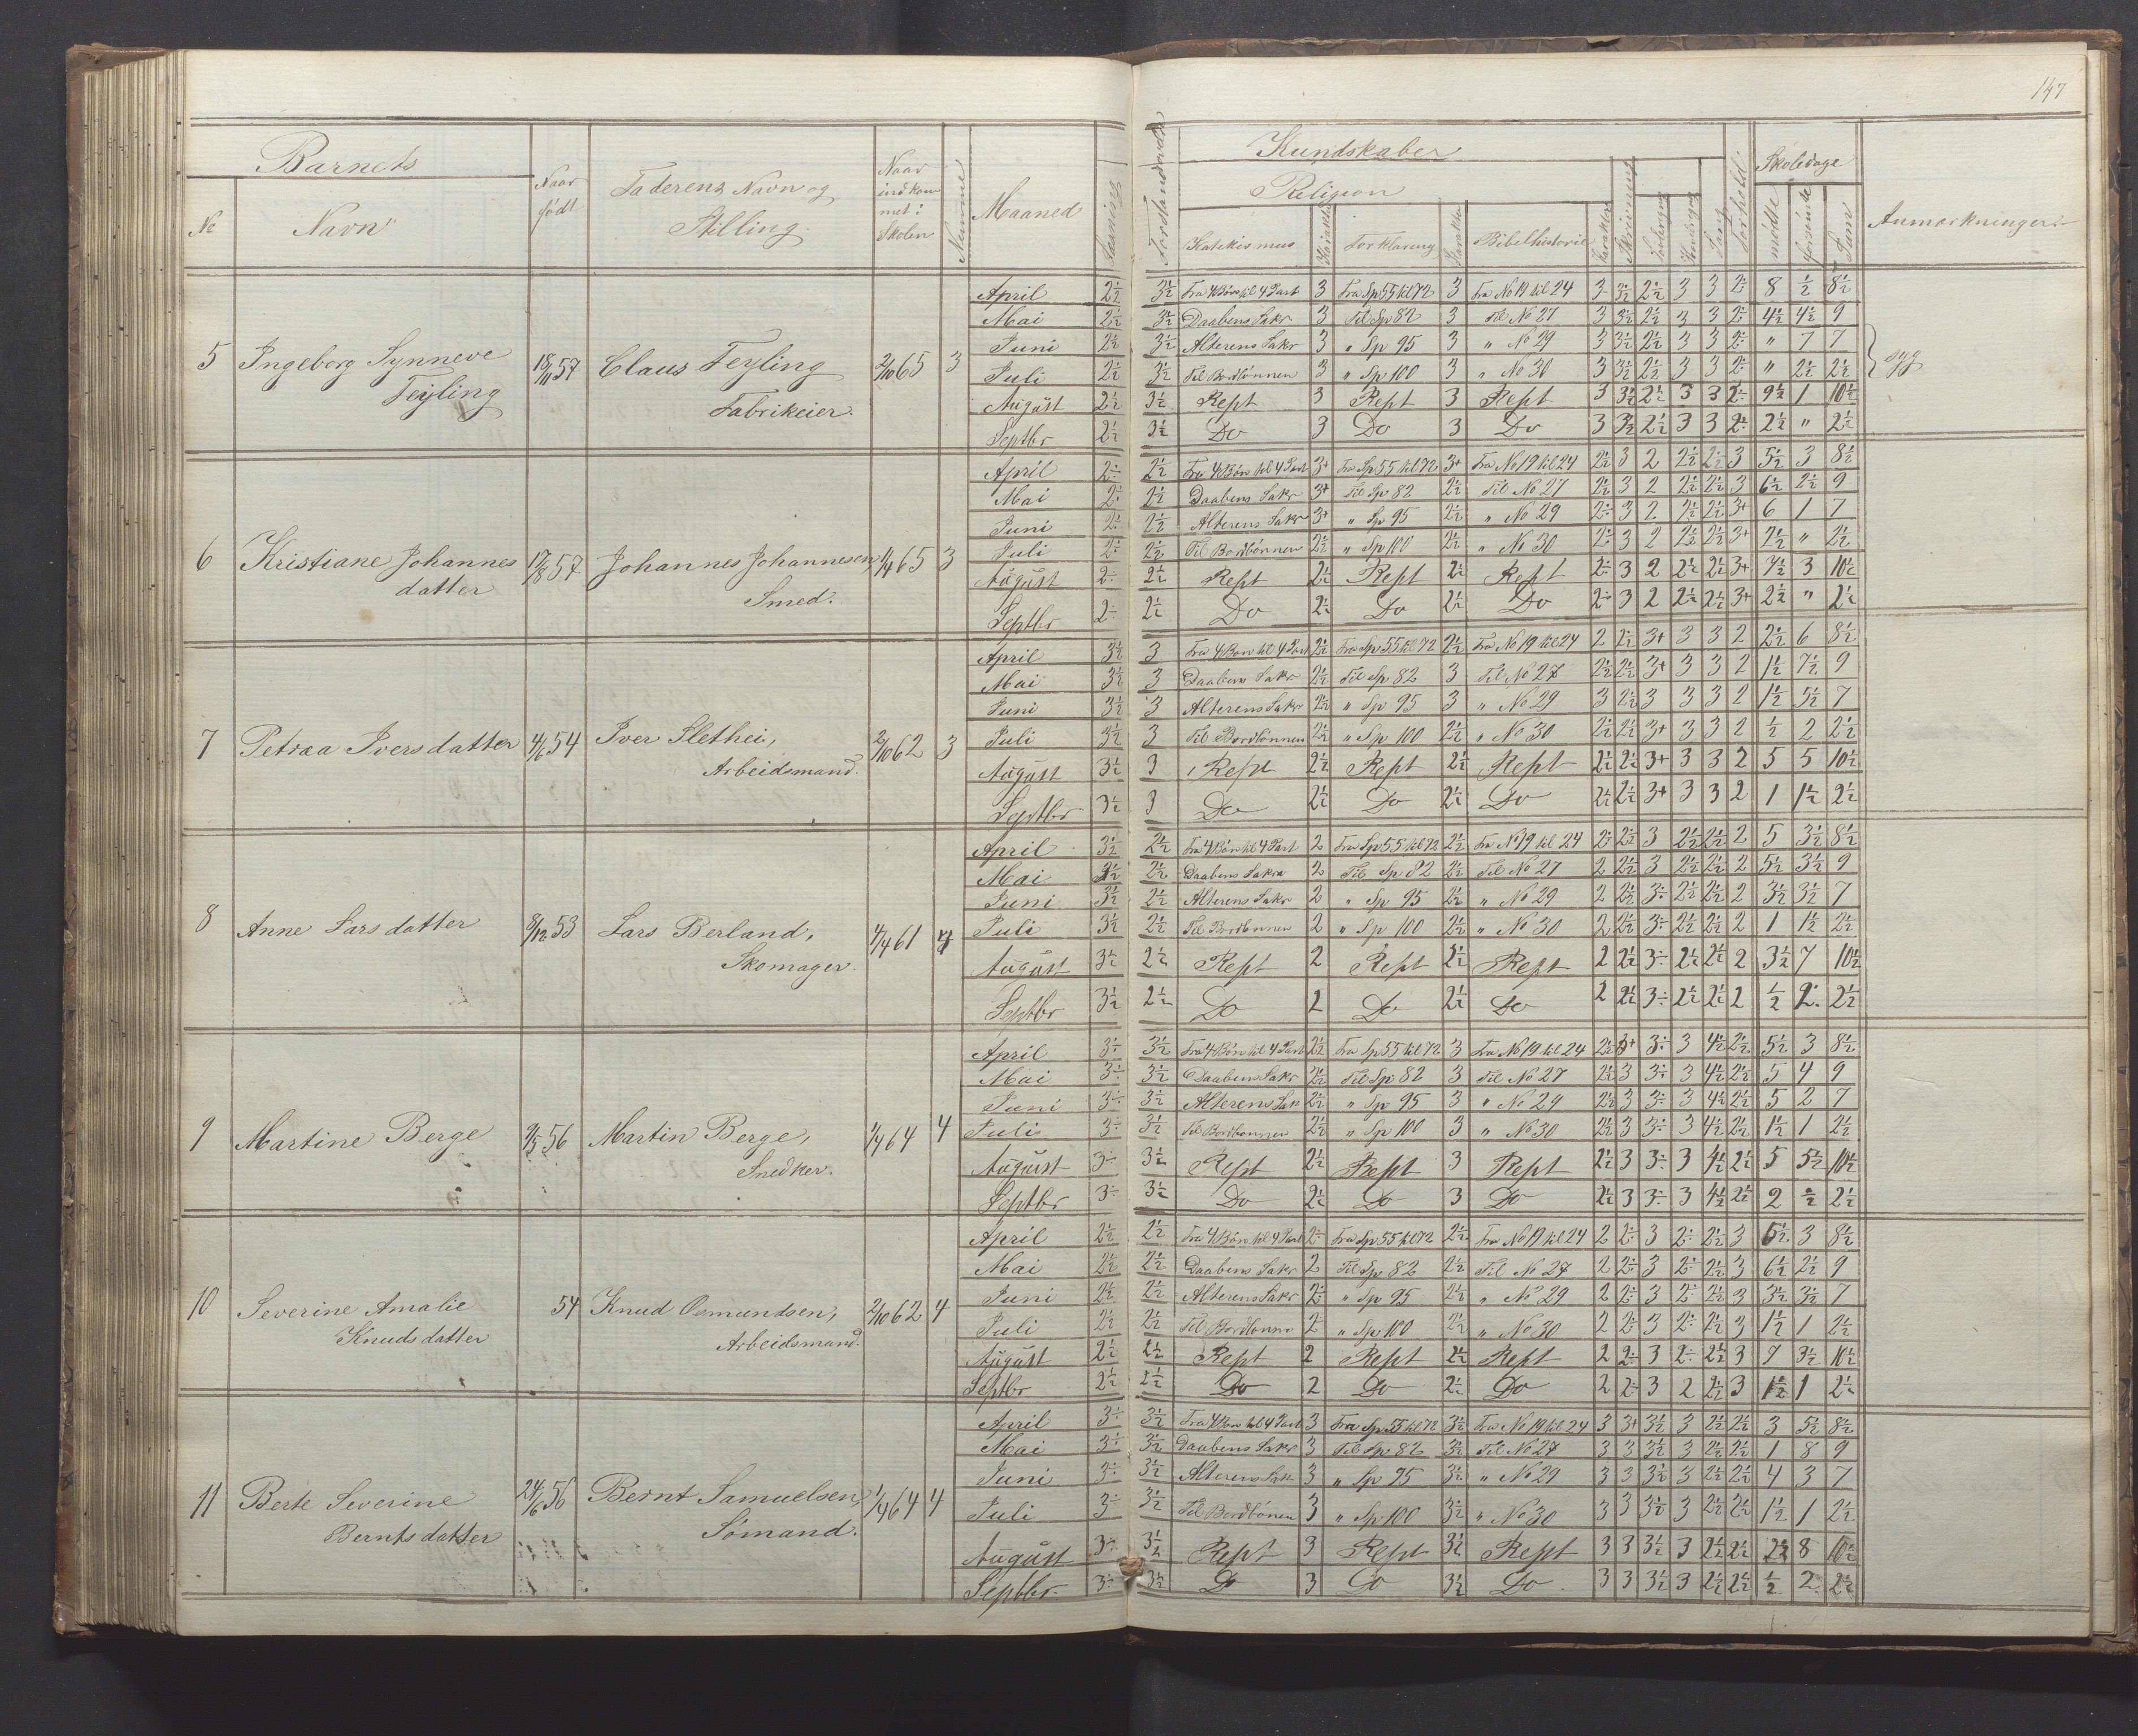 147
Barnets
No
Navn
Naar født
Faderens Navn og Stilling
Naar indkommet i Skolen
Nummer
Maaned
Læsning
Forstandsøvelse
Kundskaber
Religion
Katekismus
Karakter
Forklaring
Karakter
Bibelhistorie
Karakter
Skrivning
Sang
Forhold
Skoledage
mødte
forsømte
Sum
Anmærkninger
5 Ingeborg Synneve Feyling 18/11 57 Claus Feyling Fabrikeier. 2/10 65 3
April 2½ 3½ Fra 4 Bøn til 4 Part 3 Fra Sp 55 til 72 3 Fra No 19 til 24 3 3½ 2½ 3 3 2÷ 8 ½ 8½
Mai 2½ 3½ Daabens Sakr 3 Til Sp 82 3 Til No 27 3 3½ 2½ 3 3 2÷ 4½ 4½ 9
Juni 2½ 3½ Alterens Sakr 3 " Sp 95 3 " No 29 3 3½ 2½ 3 3 2÷ " 7 7
Juli 2½ 3½ Til Bordbønnen 3 " Sp 100 3 " No 30 3 3½ 2½ 3 3 2÷ " 2½ 2½
syg
August 2½ 3½ Rept 3 Rept 3 Rept 3 3½ 2½ 3 3 2÷ 9½ 1 10½
Septbr 2½ 3½ Do 3 Do 3 Do 3 3½ 2½ 3 3 2÷ 2½ " 2½
6 Kristiane Johannesdatter 17/8 57 Johannes Johannesen, Smed. 1/4 65 3
April 2÷ 2½ Fra 4 Bøn til 4 Part 3+ Fra Sp 55 til 72 3+ Fra No 19 til 24 2½ 3 2 2½ 2½ 3 5½ 3 8½
Mai 2÷ 2½ Daabens Sakr 3+ Til Sp 82 2½ Til No 27 2½ 3 2 2½ 2½ 3 6½ 2½ 9
Juni 2÷ 2½ Alterens Sakr 3+ " Sp 95 2½ " No 29 2÷ 3 2 2½ 2½ 3+ 6 1 7
Juli 2÷ 2½ Til Bordbønnen 2½ " Sp 100 2½ " No 30 2÷ 3 2 2½ 2½ 3+ 2½ " 2½
August 2÷ 2½ Rept 2½ Rept 2½ Rept 2÷ 3 2 2½ 2½ 3+ 7½ 3 10½
Septbr 2÷ 2½ Do 2½ Do 2½ Do 2÷ 3 2 2½ 2½ 3+ 2½ " 2½
7 Petraa Iversdatter 4/6 54 Iver Slethei, Arbeidsmand. 2/10 62 3
April 3½ 3 Fra 4 Bøn til 4 Part 2½ Fra Sp 55 til 72 2½ Fra No 19 til 24 2 2½ 3+ 3 3 2 2½ 6 8½
Mai 3½ 3 Daabens Sakr 2½ Til Sp 82 3 Til No 27 2½ 2½ 3+ 3 3 2 1½ 7½ 9
Juni 3½ 3 Alterens Sakr 2½ " Sp 95 3 " No 29 3 2½ 3 3 3 2 1½ 5½ 7
Juli 3½ 3 Til Bordbønnen 2½ " Sp 100 2½ " No 30 2½ 2½ 3+ 3 3 2 ½ 2 2½
August 3½ 3 Rept 2½ Rept 2½ Rept 2½ 2½ 3+ 3 3 2 5 5 10½
Septbr 3½ 3 Do 2½ Do 2½ Do 2½ 2½ 3+ 3 3 2 1 1½ 2½
8 Anne Larsdatter 8/12 53 Lars Berland, Skomager. 4/4 61
April 3½ 2½ Fra 4 Bøn til 4 Part 2 Fra Sp 55 til 72 2½ Fra No 19 til 24 2÷ 2½ 3 2½ 2½ 2 5 3½ 8½
Mai 3½ 2½ Daabens Sakra 2 Til Sp 82 2½ Til No 27 2 2½ 3 2½ 2½ 2 5½ 3½ 9
Juni 3½ 2½ Alterens Sakr 2 " Sp 95 2½ " No 29 2 2½ 3÷ 2½ 2½ 2 3½ 3½ 7
Juli 3½ 2½ Til Bordbønnen 2 " Sp 100 2½ " No 30 2 2½ 3÷ 2½ 2½ 2 1 1½ 2½
August 3½ 2½ Rept 2 Rept 2½ Rept 2 2½ 3÷ 2½ 2½ 2 3½ 7 10½
Septbr 3½ 2½ Do 2 Do 2½ Do 2 2½ 3÷ 2½ 2½ 2 ½ 2 2½
9 Martine Berge 9/5 56 Martin Berge, Snedker. 1/4 64 4
April 3÷ 3½ Fra 4 Bøn til 4 Part 2½ Fra Sp 55 til 72 3 Fra No 19 til 24 2½ 3+ 3÷ 3 4½ 2½ 5½ 3 8½
Mai 3÷ 3½ Daabens Sakr 2½ Til Sp 82 3 Til No 27 2½ 3 3÷ 3 4½ 2½ 5 4 9
Juni 3÷ 3½ Alterens Sak 2½ " Sp 95 3 " No 29 2½ 3 3÷ 3 4½ 2½ 5 2 7
Juli 3÷ 3½ Til Bordbønnen 2½ " Sp 100 3 " No 30 2½ 3 3÷ 3 4½ 2½ 1½ 1 2½
August 3÷ 3½ Rept 2½ Rept 3 Rept 2½ 3 3÷ 3 4½ 2½ 5 5½ 10½
Septbr 3÷ 3½ Do 2½ Do 3 Do 2½ 3 3÷ 3 4½ 2½ 2 ½ 2½
10 Severine Amalie Knudsdatter 54 Knud Osmundsen, Arbeidsmand. 2/10 62 4
April 2½ 2½ Fra 4 Bøn til 4 Part 2÷ Fra Sp 55 til 72 2½ Fra No 19 til 24 2 2÷ 3 2÷ 2½ 3 5½ 3 8½
Mai 2½ 2½ Daabens Sakr 2 Til Sp 82 2½ Til No 27 2 2÷ 3 2÷ 2½ 3 6½ 2½ 9
Juni 2½ 2½ Alterens Sakr 2÷ " Sp 95 2½ " No 29 2 2÷ 3 2÷ 2½ 3 3½ 3½ 7
Juli 2½ 2½ Til Bordbønne 2 " Sp 100 2½ " No 30 2 2÷ 3 2÷ 2½ 3 1½ 1 2½
August 2½ 2½ Rept 2 Rept 2½ Rept 2 2÷ 3 2÷ 2½ 3 7 3½ 10½
Septbr 2½ 2½ Do 2 Do 2½ Do 2 2÷ 3 2 2½ 3 1½ 1 2½
11 Berte Severine Berntsdatter 24/6 56 Bernt Samuelsen, Sømand. 1/4 64 4
April 3÷ 3½ Fra 4 Bøn til 4 Part 3 Fra Sp 55 til 72 3½ Fra No 19 til 24 3 3+ 3½ 3 2½ 2½ 3 5½ 8½
Mai 3÷ 3½ Daabens Sakr 3 Til Sp 82 3½ Til No 27 3 3 3½ 3 2½ 2½ 1 8 9
Juni 3÷ 3½ Alterens Sak 3 " Sp 95 3½ " No 29 3 3 3½ 3 2½ 2½ 4 3 7
Juli 3÷ 3½ Til Bordbønen 3 " Sp 100 3½ " No 30 3 3 3½ 3 2½ 2½ 1½ 1 2½
August 3÷ 3½ Rept 3 Rept 3½ Rept 3 3 3½ 3 2½ 2½ 2½ 8 10½
Septbr. 3÷ 3½ Do 3 Do 3½ Do 3 3 3½ 3 2½ 2½ ½ 2 2½